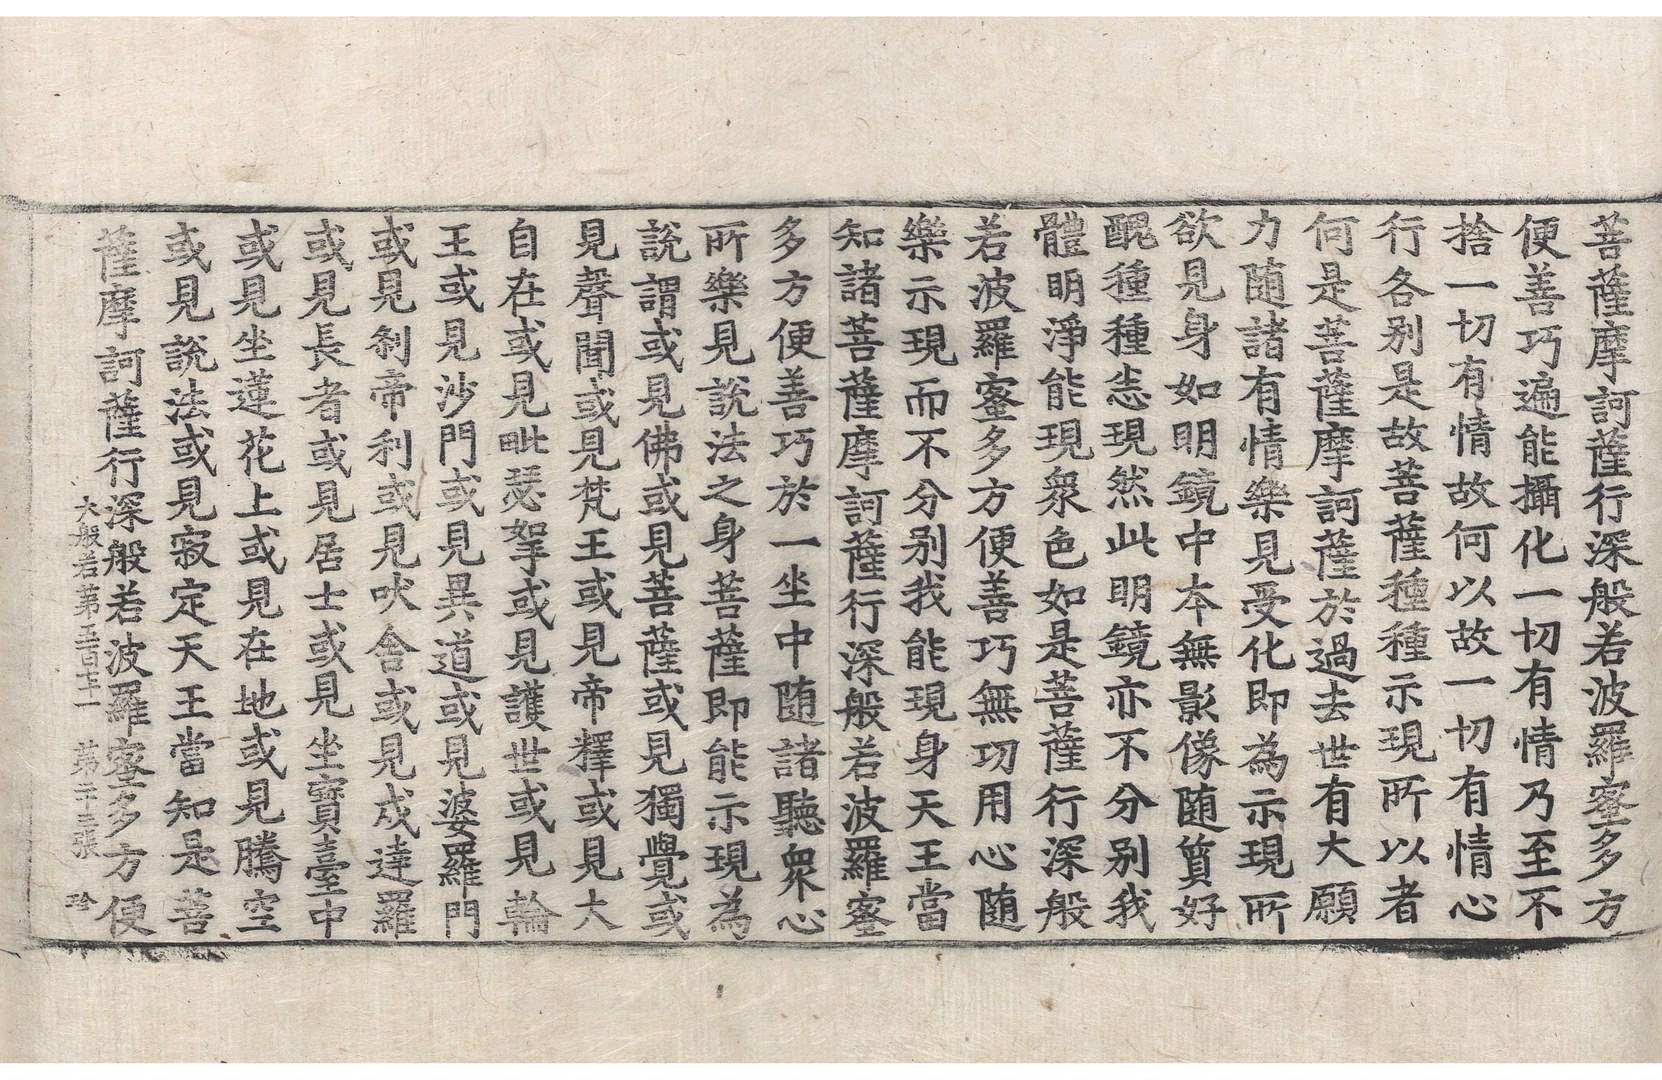 菩薩摩訶薩行深般若波羅蜜多方
便善巧遍能攝化一切有情乃至不
捨一切有情故何以故一切有情心
行各别是故菩薩種種示現所以者
何是菩薩摩訶薩於過去世有大願
力随諸有情樂見受化即為示現所
欲見身如明鏡中本無影像随質好
醜種種悉現然此明鏡亦不分别我
體明淨能現衆色如是菩薩行深般
若波羅蜜多方便善巧無功用心随
樂示現而不分别我能現身天王當
知諸菩薩摩訶薩行深般若波羅蜜
多方便善巧於一坐中随諸聽衆心
所樂見說法之身菩薩即能示現為
說謂或見佛或見菩薩或見獨覺或
見聲聞或見梵王或見帝釋或見大
自在或見毗瑟拏或見護世或見輪
王或見沙門或見異道或見婆羅門
或見刹帝利或見吠舍或見戍達羅
或見長者或見居士或見坐寶臺中
或見坐蓮花上或見在地或見騰空
或見說法或見寂定天王當知是菩
薩摩訶薩行深般若波羅蜜多方便
大般若第五百七十一 第十三張 珍